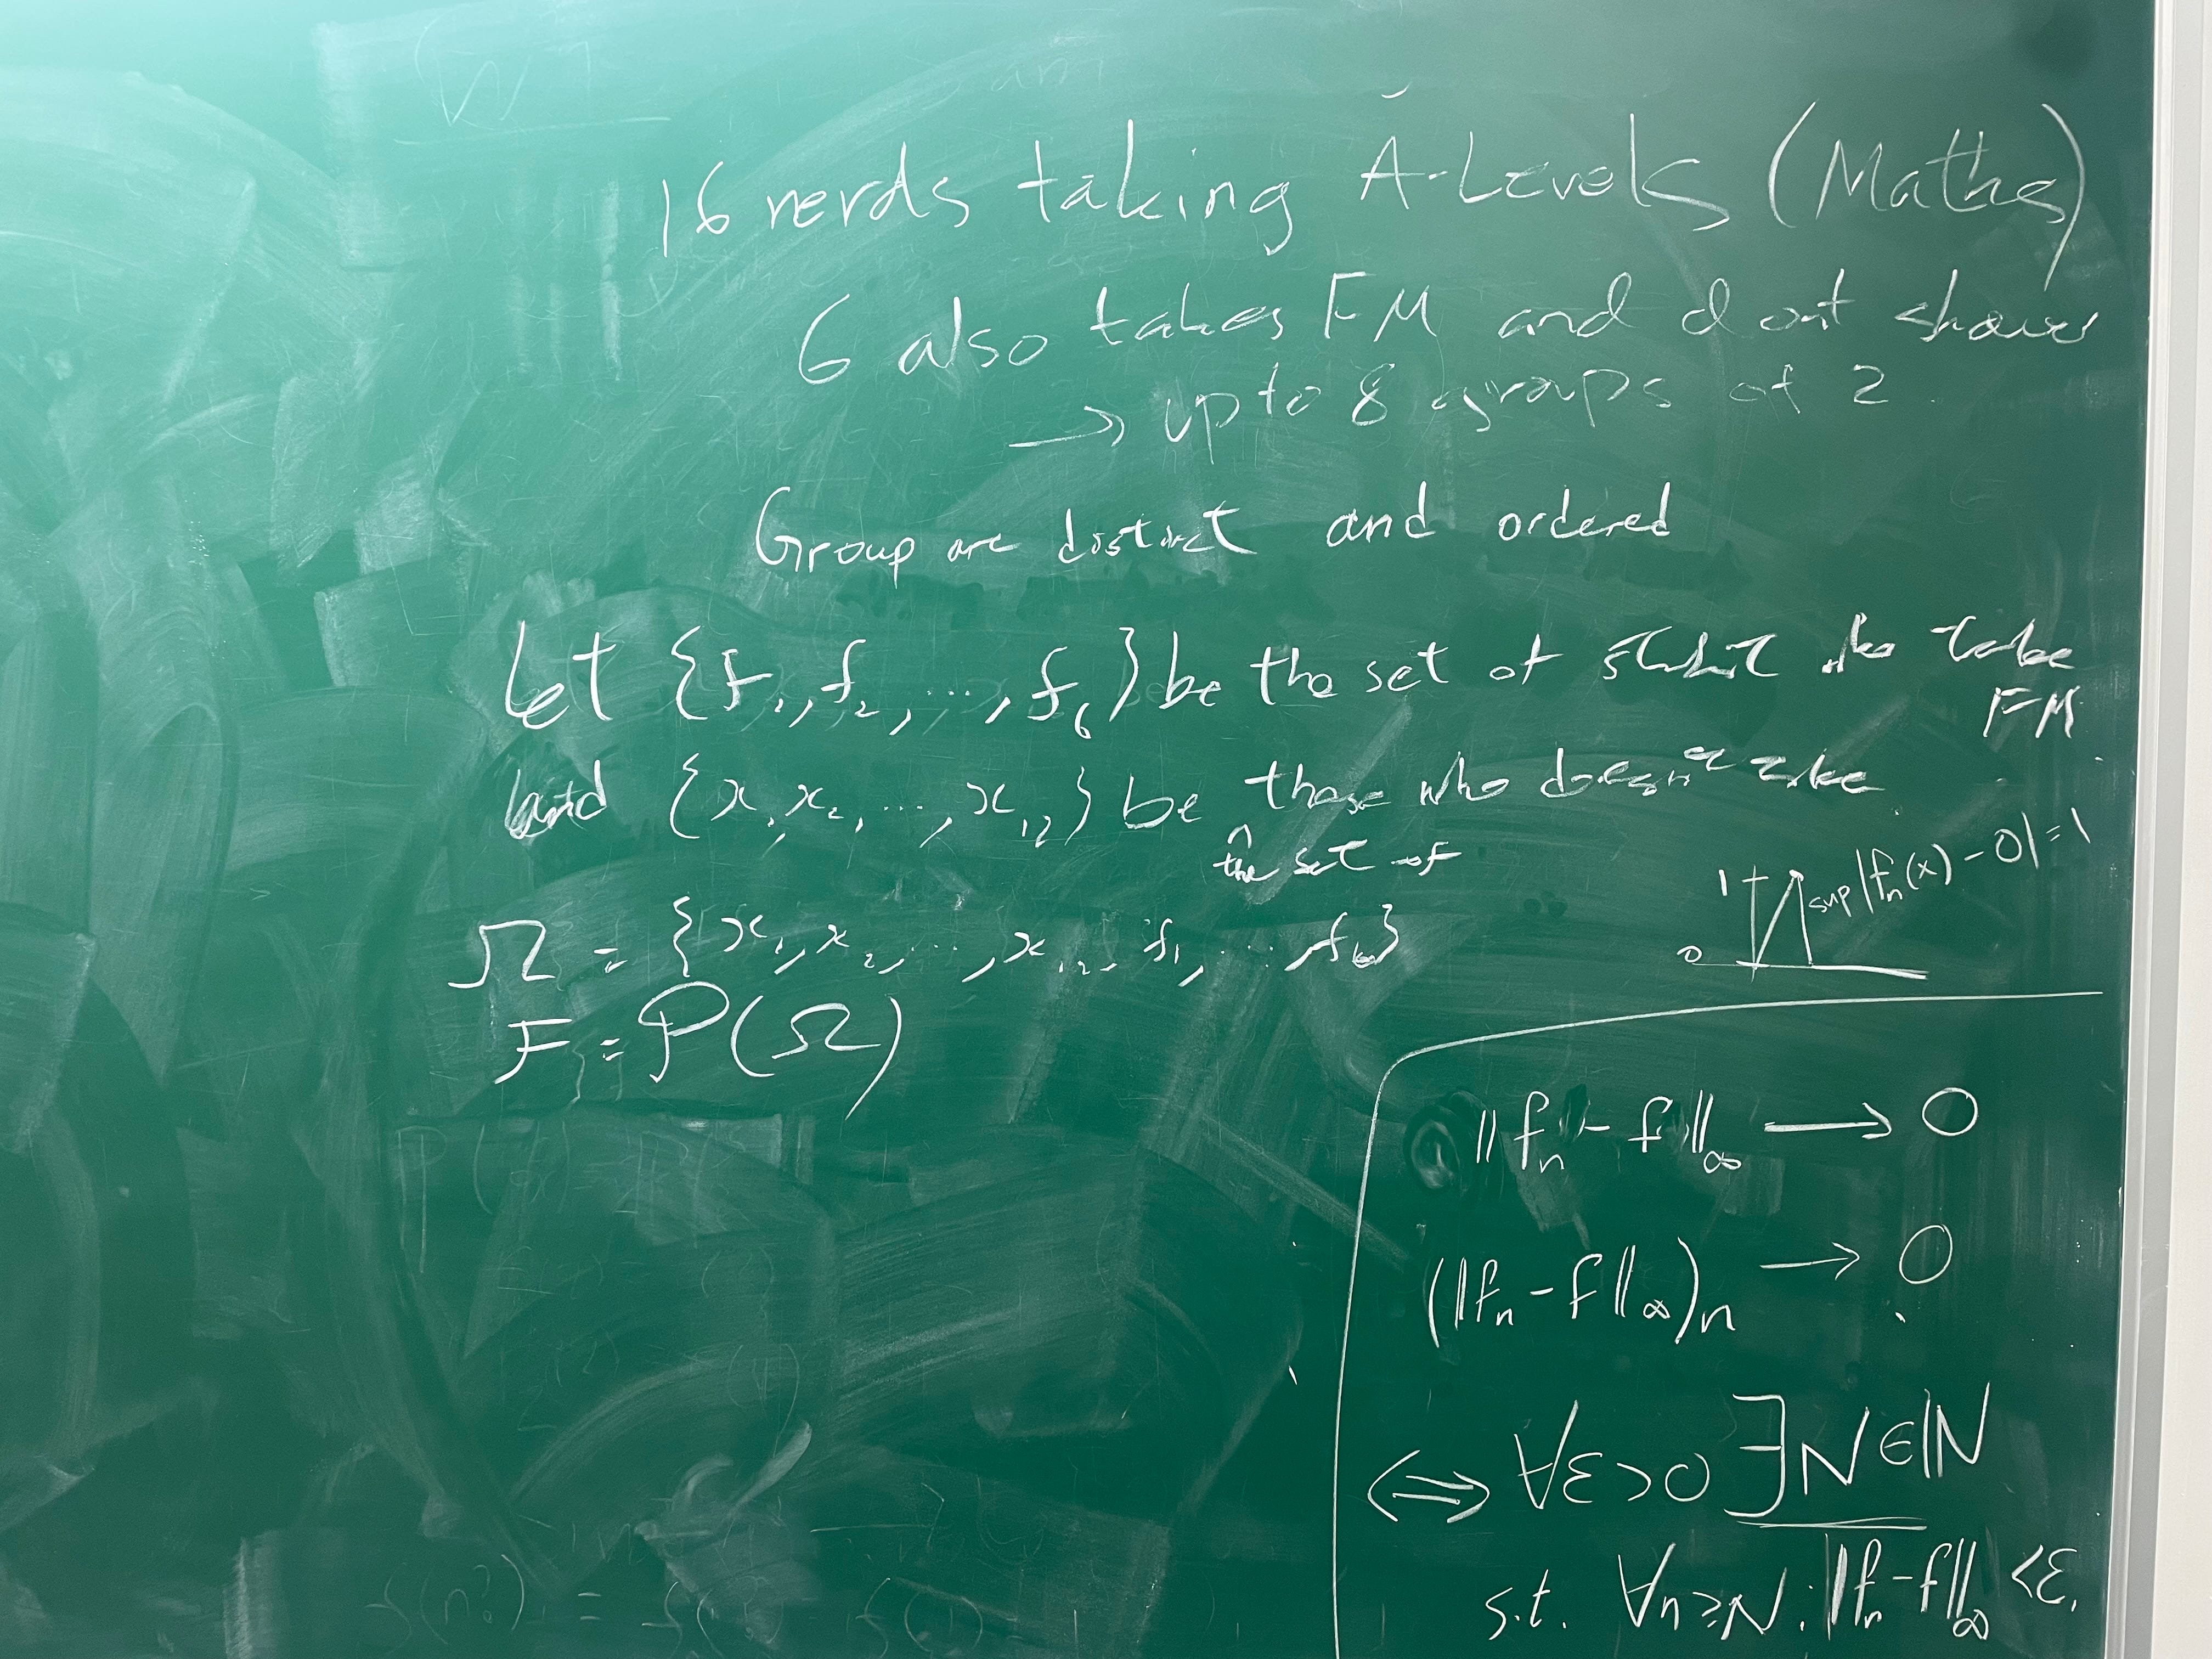 16 nerds taking A-Levels (Maths)
6 also takes FM and dont shower
→ up to 8 groups of 2
Group are distinct and ordered
Let {f₁, f₂, ..., f₆} be the set of who take
FM
and {x₁, x₂, ..., x₁₂} be those who doesn't take
^
the set of
Ω = {x₁, x₂, ..., x₁₂, f₁, ..., f₆}
F = P(Ω)
1
sup |fₙ(x) - 0| = 1
0
||fₙ - f||∞ → 0
(||fₙ - f||∞)ₙ → 0
⇔ ∀ε > 0 ∃N ∈ ℕ
s.t. ∀n ≥ N: ||fₙ - f||∞ < ε.